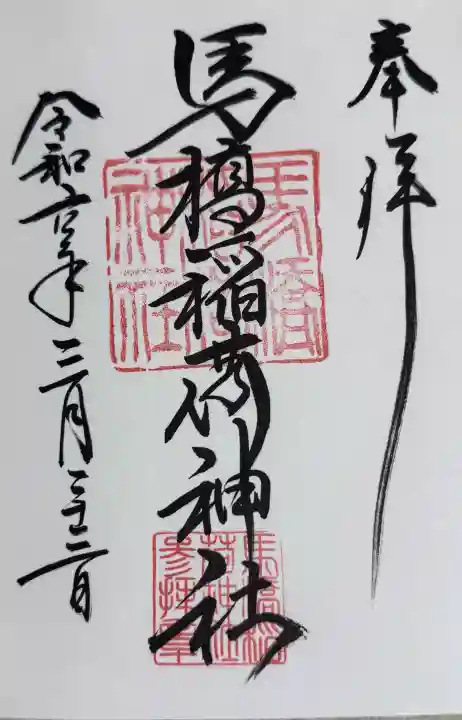 奉拝
馬橋稲荷神社
令和六年三月二十二日
馬橋
稲荷
神社
馬橋稲
荷神社
参拝章